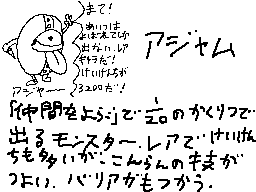 まて!
あいつは
よばれてしか
出ない、レア
キャラだ!
けいけんちが
3200だ!
アジャー
アジャム
「仲間をよぶ」で1/20のかくりつで
出るモンスター。レアでけいけん
ちも多いが、こんらんの技が
つよい。バリアがもつかう。